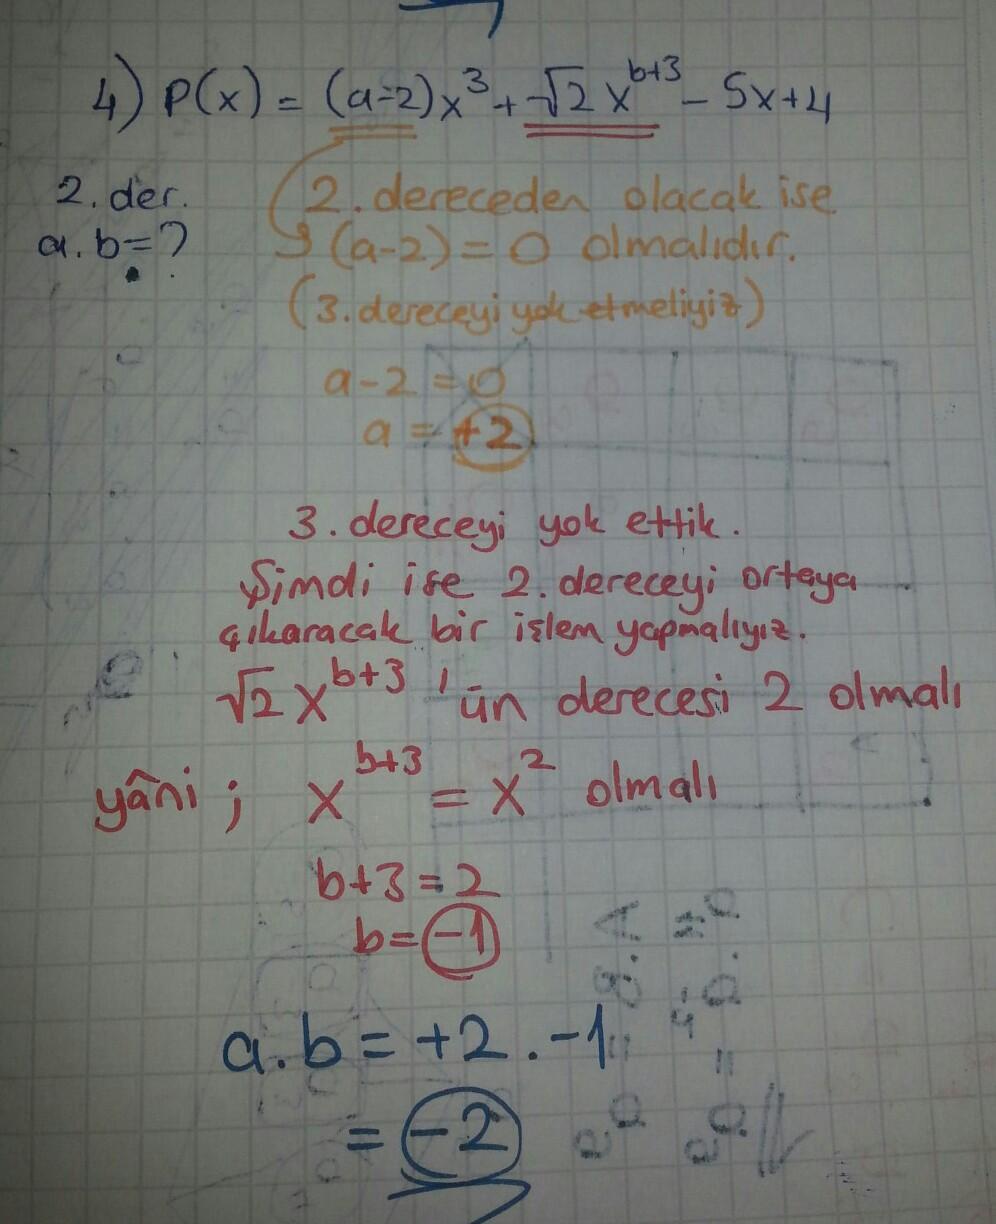 4) P(x) = (a-2)x³ + √2 x^(b+3) - 5x+4
2. der.
a.b=?
2. dereceden olacak ise
(a-2) = 0 olmalıdır.
(3. dereceyi yok etmeliyiz)
a-2 = 0
a = +2
3. dereceyi yok ettik.
Şimdi ise 2. dereceyi ortaya
çıkaracak bir işlem yapmalıyız.
√2 x^(b+3) 'ün derecesi 2 olmalı
yâni ; x^(b+3) = x² olmalı
b+3 = 2
b = -1
a.b = +2 . -1
= -2